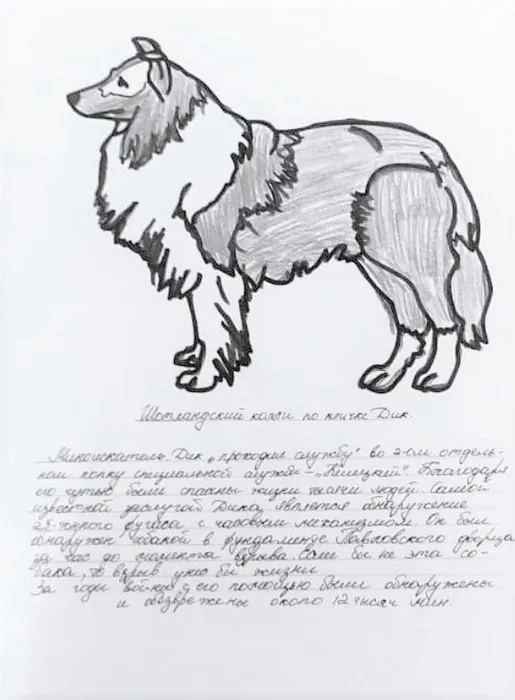 Шотландский колли по кличке Дик.
Миноискатель Дик „проходил службу" во 2-ом отдель-
ном полку специальной службы – „Келецкий". Благодаря
его чутью были спасены жизни тысячи людей. Самой
известной заслугой Дика, является обнаружение
2,5-тонного фугаса с часовым механизмом. Он был
обнаружен собакой в фундаменте Павловского дворца
за час до момента взрыва. Если бы не эта со-
бака, то взрыв унес бы жизни
За годы войны с его помощью были обнаружены
и обезврежены около 12 тысяч мин.